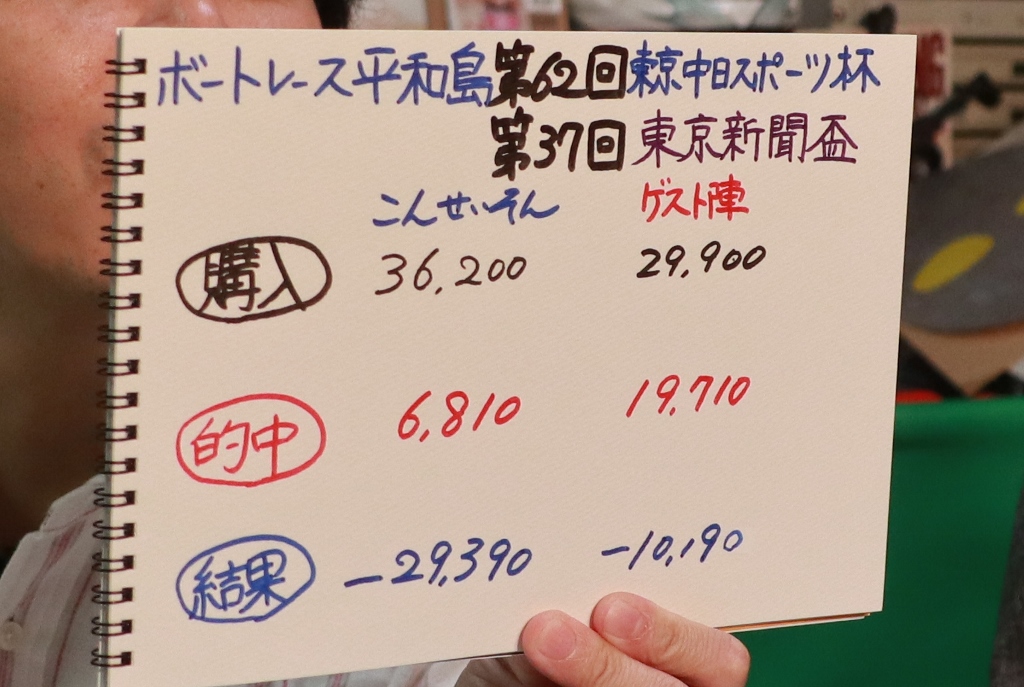 ボートレース平和島第62回東京中日スポーツ杯
第37回東京新聞盃
こんせいそん ゲスト陣
購入 36,200 29,900
的中 6,810 19,710
結果 -29,390 -10,190